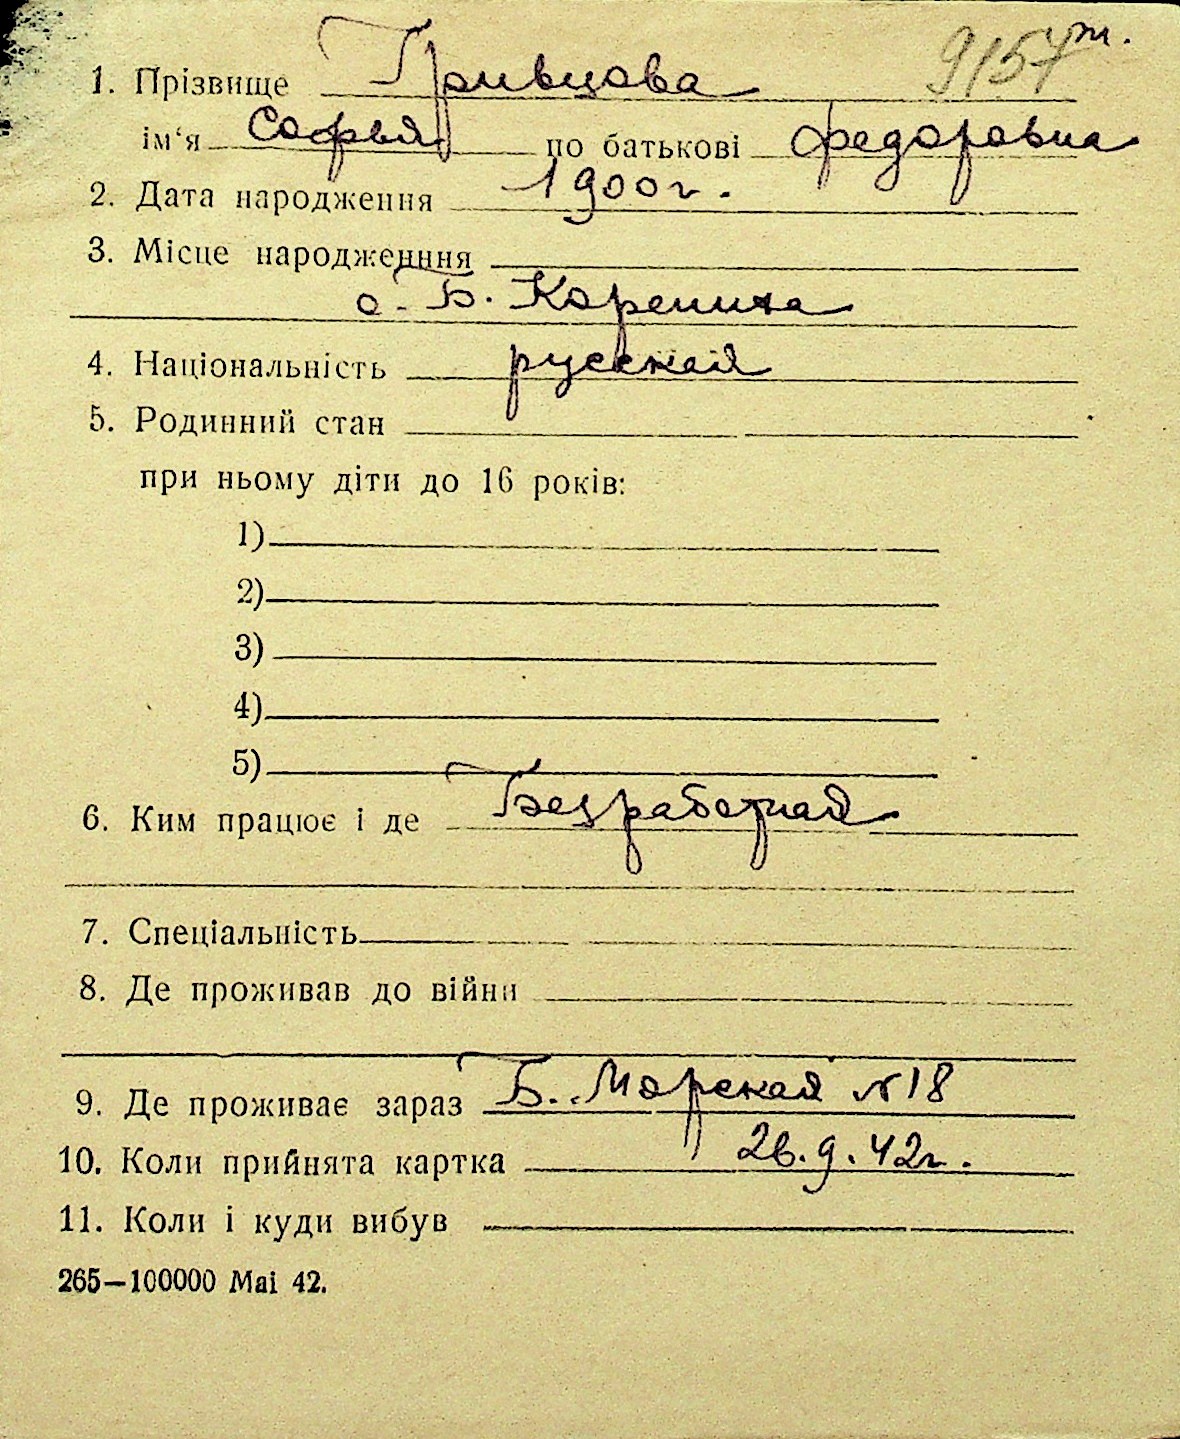 9157 т.
1. Прізвище Гривцова
ім‘я Софья по батькові Федоровна
2. Дата народження 1900 г.
3. Місце народженння
с. Б. Корениха
4. Національність русская
5. Родинний стан
при ньому діти до 16 років:
1)
2)
3)
4)
5)
6. Ким працює і де Безработная
7. Спеціальність
8. Де проживав до війни
9. Де проживає зараз Б. Морская № 18
10. Коли прийнята картка 26.9.42 г.
11. Коли і куди вибув
265—100000 Mai 42.